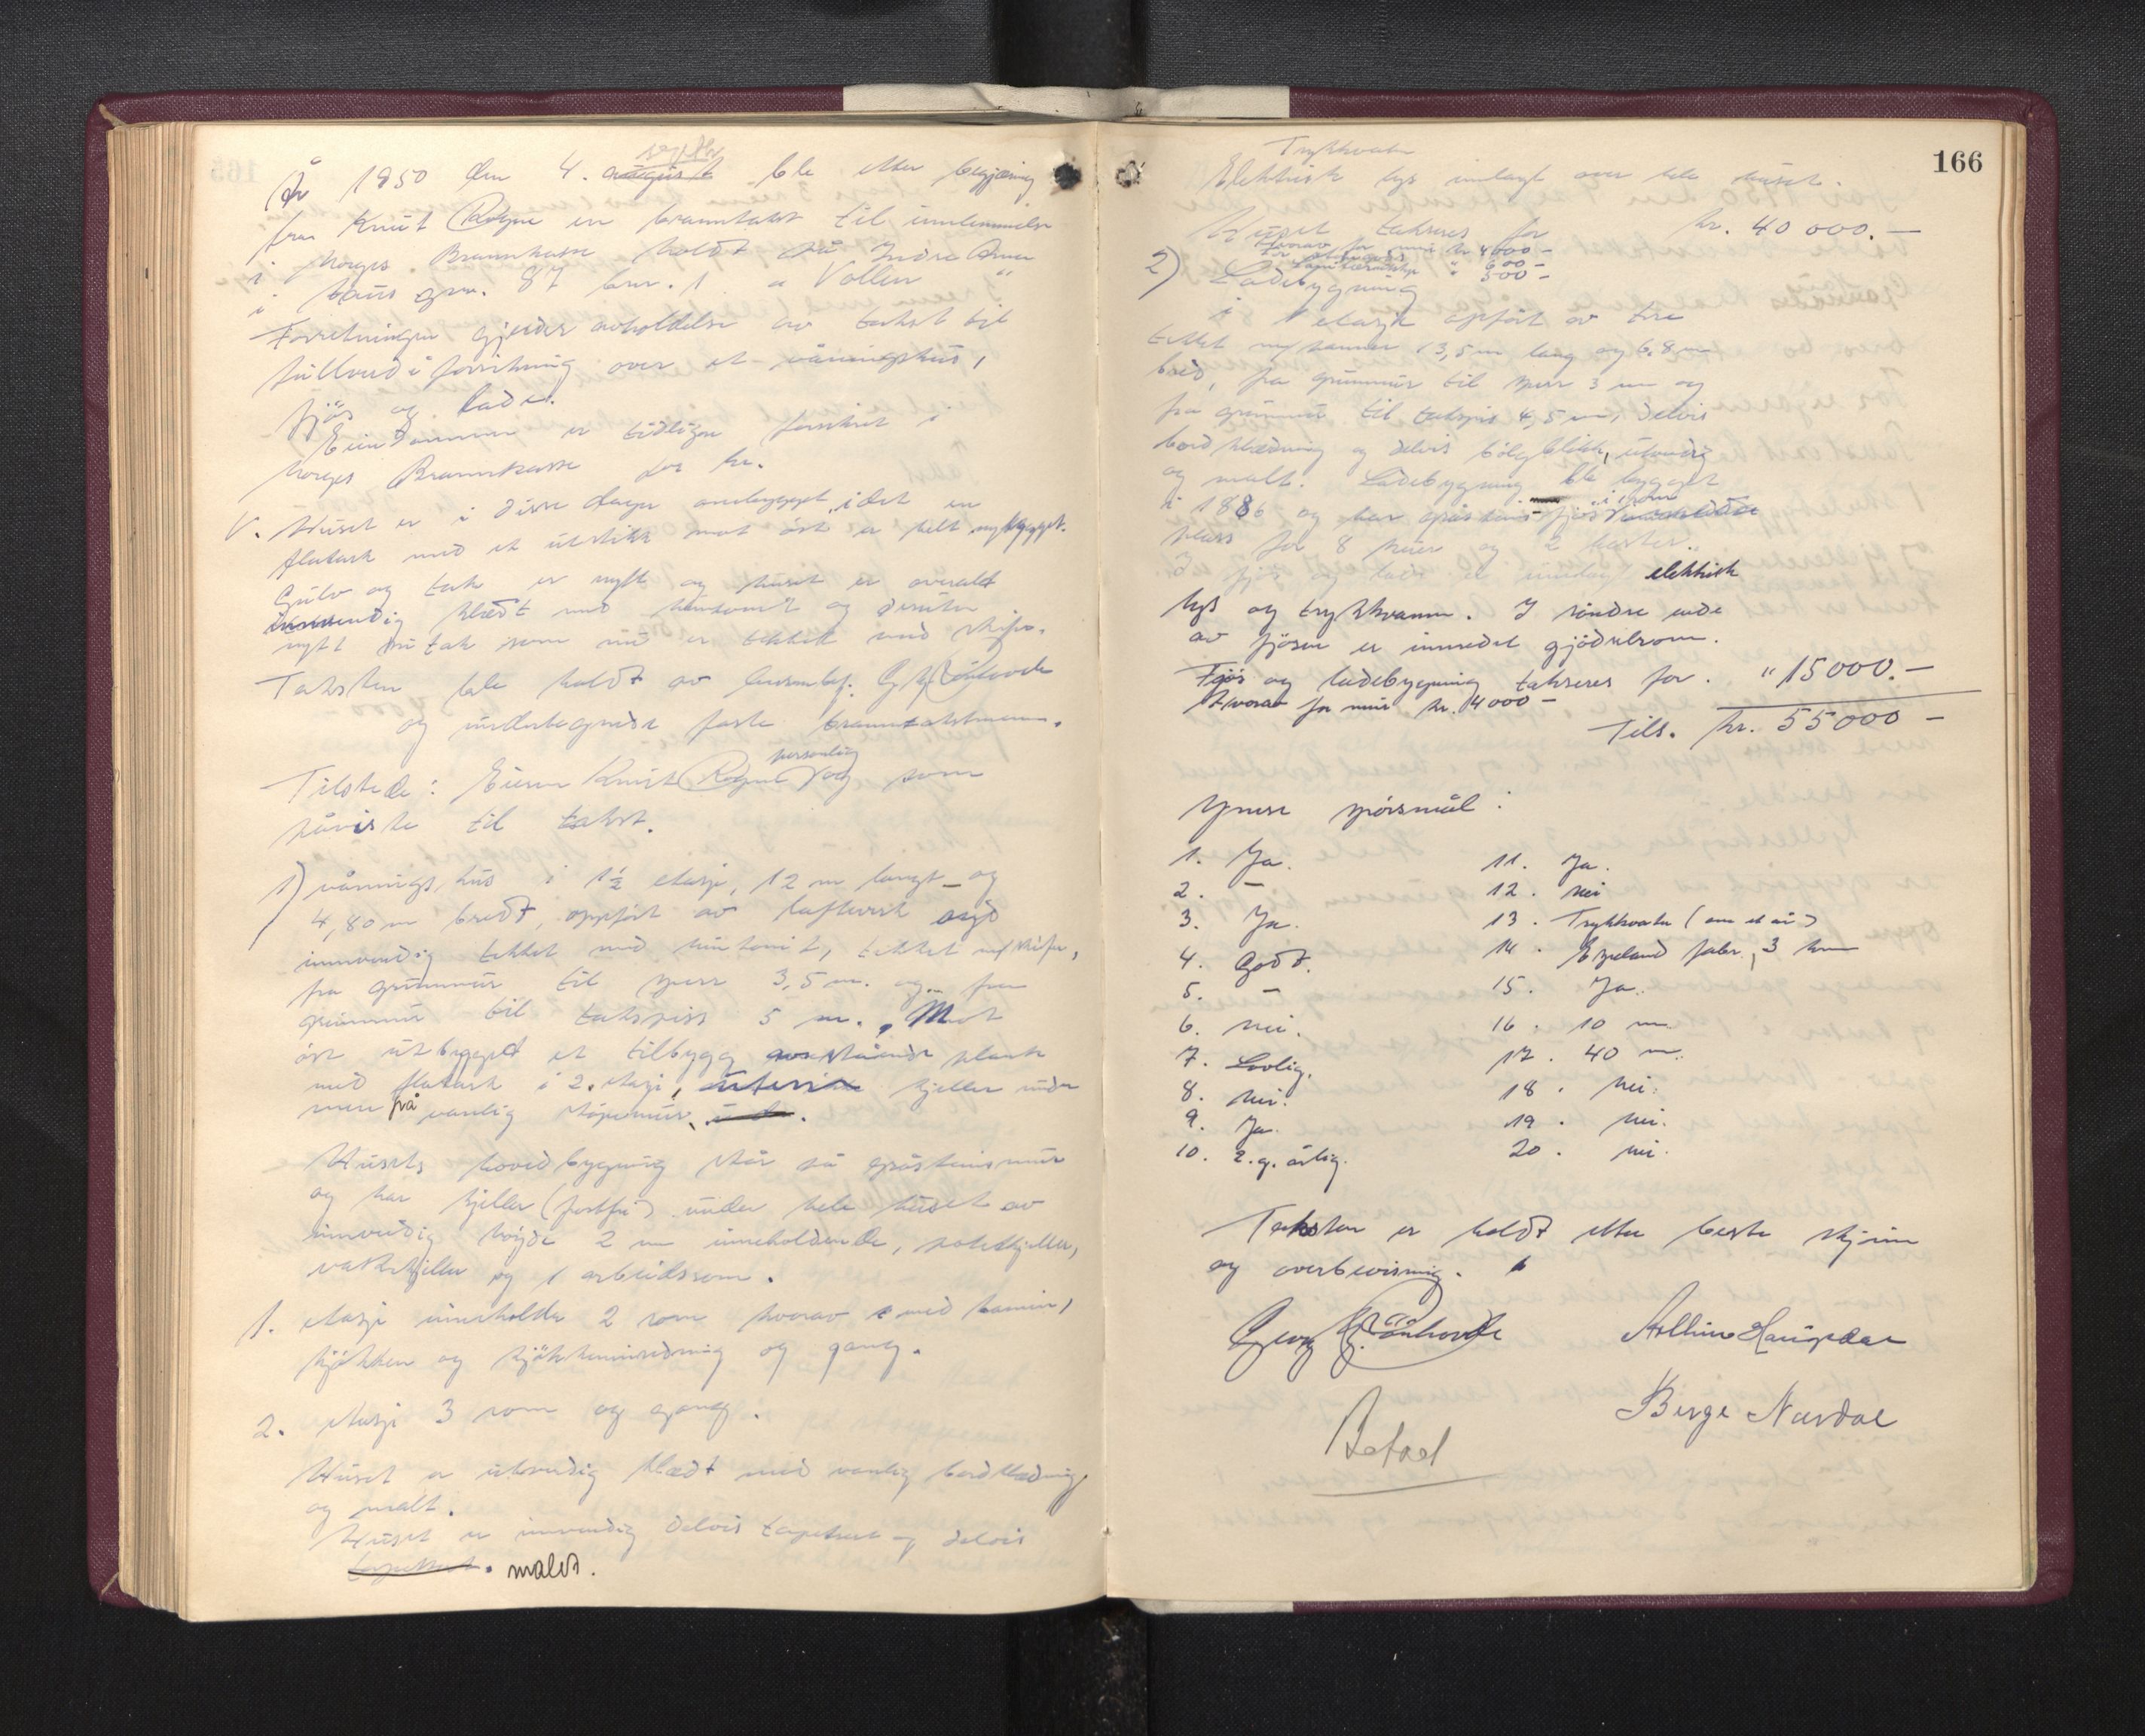 År 1950 den 4. august septbr ble etter begjæring
fra Knut Rogne en branntakst til innlemmelse
i Norges Brannkasse holdt på Indre Arna
i hans gnr. 87 bnr. 1 a Vollen
Forretningen gjelder avholdelse av takst til
fullverdiforsikring over et våningshus,
fjøs og lade.
Eiendommen er tidligere forsikret i
Norges Brannkasse for kr.
V. Huset er i disse dager ombygget, idet en
flatark med et utstikk mot øst er helt nybygget.
Gulv og tak er nytt og huset er overalt
innvendig klædt med huntonit og desuten
nytt tak som nu er tekket med skifer.
Taksten ble holdt av lensmbtj. Gg. Kj. Rönhovde
og undertegnede faste branntakstmenn.
Tilstede: Eieren Knut Rogne personlig og som
påviste til takst.
1) våningshus i 1½ etasje, 12 m langt og
4,80 m bredt, oppført av lafteverk og
innvendig tekket med huntonit, tekket m/skifer,
fra grunnmur til sperr 3,5 m. og fra
grunnmur til takspiss 5 m. Mot
øst utbygget et tilbygg av stående plank
med flatark i 2. etasje, kjeller under
men på vanlig støpemur.
Husets hovedbygning står på gråsteinsmur
og har kjeller under hele huset av
innvendig høyde 2 m inneholdende, potetkjeller,
vaskekjeller og 1 arbeidsrom.
1. etasje inneholder 2 rom hvorav med kamin,
kjøkken og kjøkkeninnredning og gang.
2. etasje 3 rom og gang.
Huset er utvendig klædt med vanlig bordklædning
og malt.
Huset er innvendig delvis tapetsert og delvis
tapetsert. malt.
166
Trykkvatn
Elektrisk lys innlagt over hele huset.
Huset takseres for kr. 40 000.—
Hvorav for mur kr 4000 —
" 600 —
" 500 —
2) Ladebygning
i 1 etasje oppført av tre
tekket m/panner 13,5 m lang og 6,8 m
bred, fra grunnmur til sperr 3 m og
fra grunnmur til takspis 4,5 m, delvis
bordklædning og delvis bølgeblikk, utvendig
og malt. Ladebygning ble bygget
i 1886 og har gråsteins fjøs i
plass for 8 kuer og 2 hester.
I fjøs og lade er innlagt elektrisk
lys og trykkvann. I söndre ende
av fjösen er innredet gjödselrom.
Fjøs og ladebygning takseres for. " 15000.—
Hvorav for mur kr. 4000 —
Tils. kr. 55 000 —
Ymse spörsmål:
1. Ja. 11. Ja.
2. — 12. Nei
3. Ja. 13. Trykkvatn
4. Godt. 14. fabr. 3 km
5. — 15. Ja.
6. Nei. 16. 10 m
7. Lovlig. 17. 40 m.
8. Nei. 18. Nei.
9. Ja. 19. Nei.
10. 2. g. årlig. 20. Nei.
Taksten er holdt etter beste skjönn
og overbevisning.
Georg Kj. Rönhovde Arthur Haugedal
Birge Nordal
Betalt